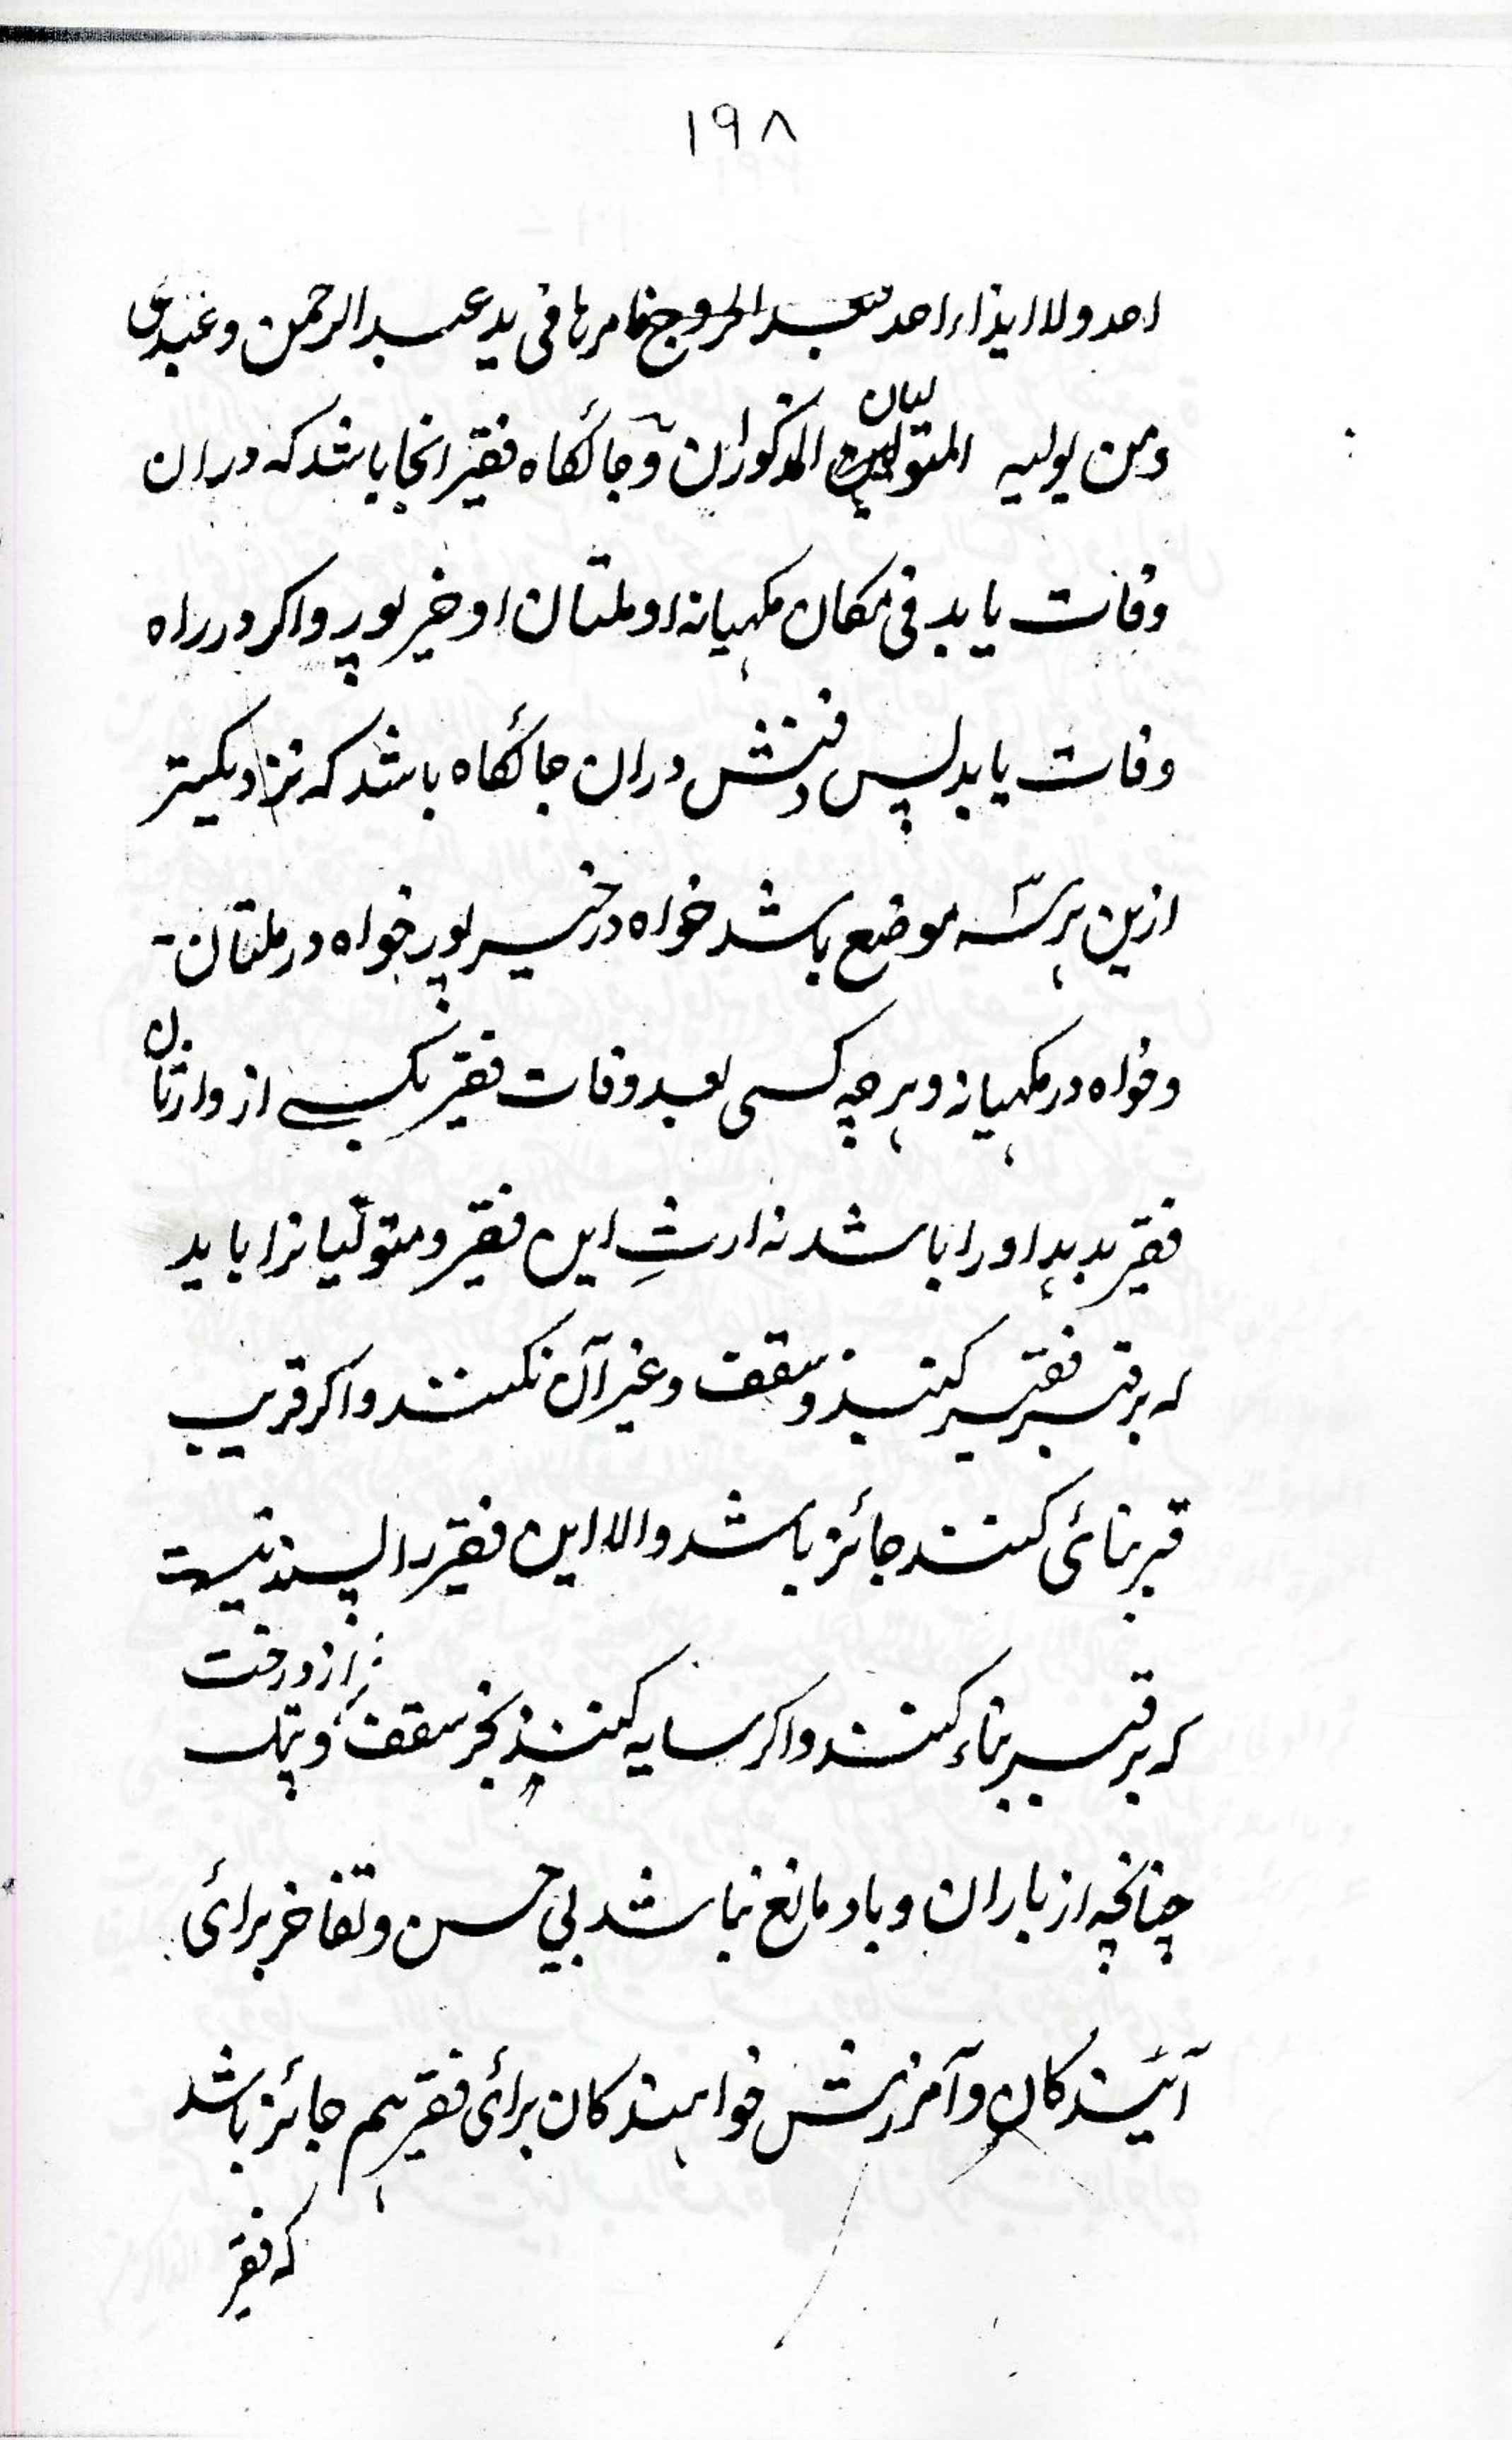 ١٩٨
احد ولا ایذاء احد بعد الخروج فامرها فی ید عبد الرحمن وعبدی
ومن یولیه المتولیان المذکوران وجائگاه فقیر انجا باشد که دران
وفات یابد فی مکان مکهیانه او ملتان او خیرپور واکر در راه
وفات یابد پس دفنش دران جائگاه باشد که نزدیکتر
ازین هر سه موضع باشد خواه در خیرپور خواه در ملتان -
وخواه در مکهیانه وهرچه کسی بعد وفات فقیر بکسے از وارثان
فقیر بدهد او را باشد نه ارثِ این فقیر ومتولّیانرا باید
که بر قبر فقیر کنبذ وسقف وغیر آن نکنند واکر قریب
قبر بنائی کنند جائز باشد والا این فقیر را پسند نیست
که بر قبر بناء کنند واکر سایه کنند بجز سقف از درخت و
چنانچه از باران وباد مانع نباشد بی حسن وتفاخر برائی
آئیندکان وآمرزش خواهندکان برائی فقیر هم جائز باشد
که فقیر